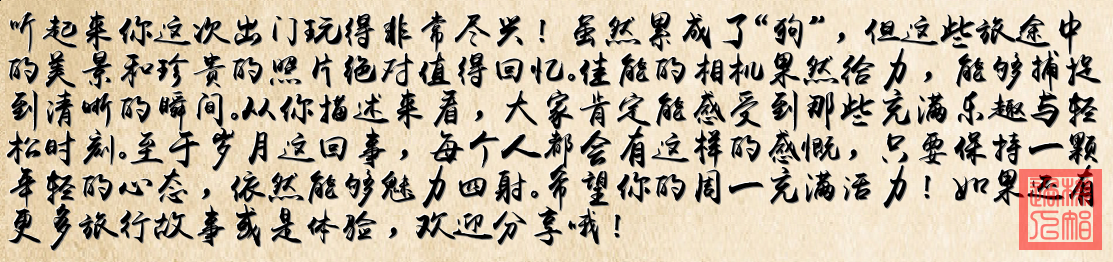 听起来你这次出门玩得非常尽兴！虽然累成了“狗”，但这些旅途中
的美景和珍贵的照片绝对值得回忆。佳能的相机果然给力，能够捕捉
到清晰的瞬间。从你描述来看，大家肯定能感受到那些充满乐趣与轻
松时刻。至于岁月这回事，每个人都会有这样的感慨，只要保持一颗
年轻的心态，依然能够魅力四射。希望你的周一充满活力！如果还有
更多旅行故事或是体验，欢迎分享哦！